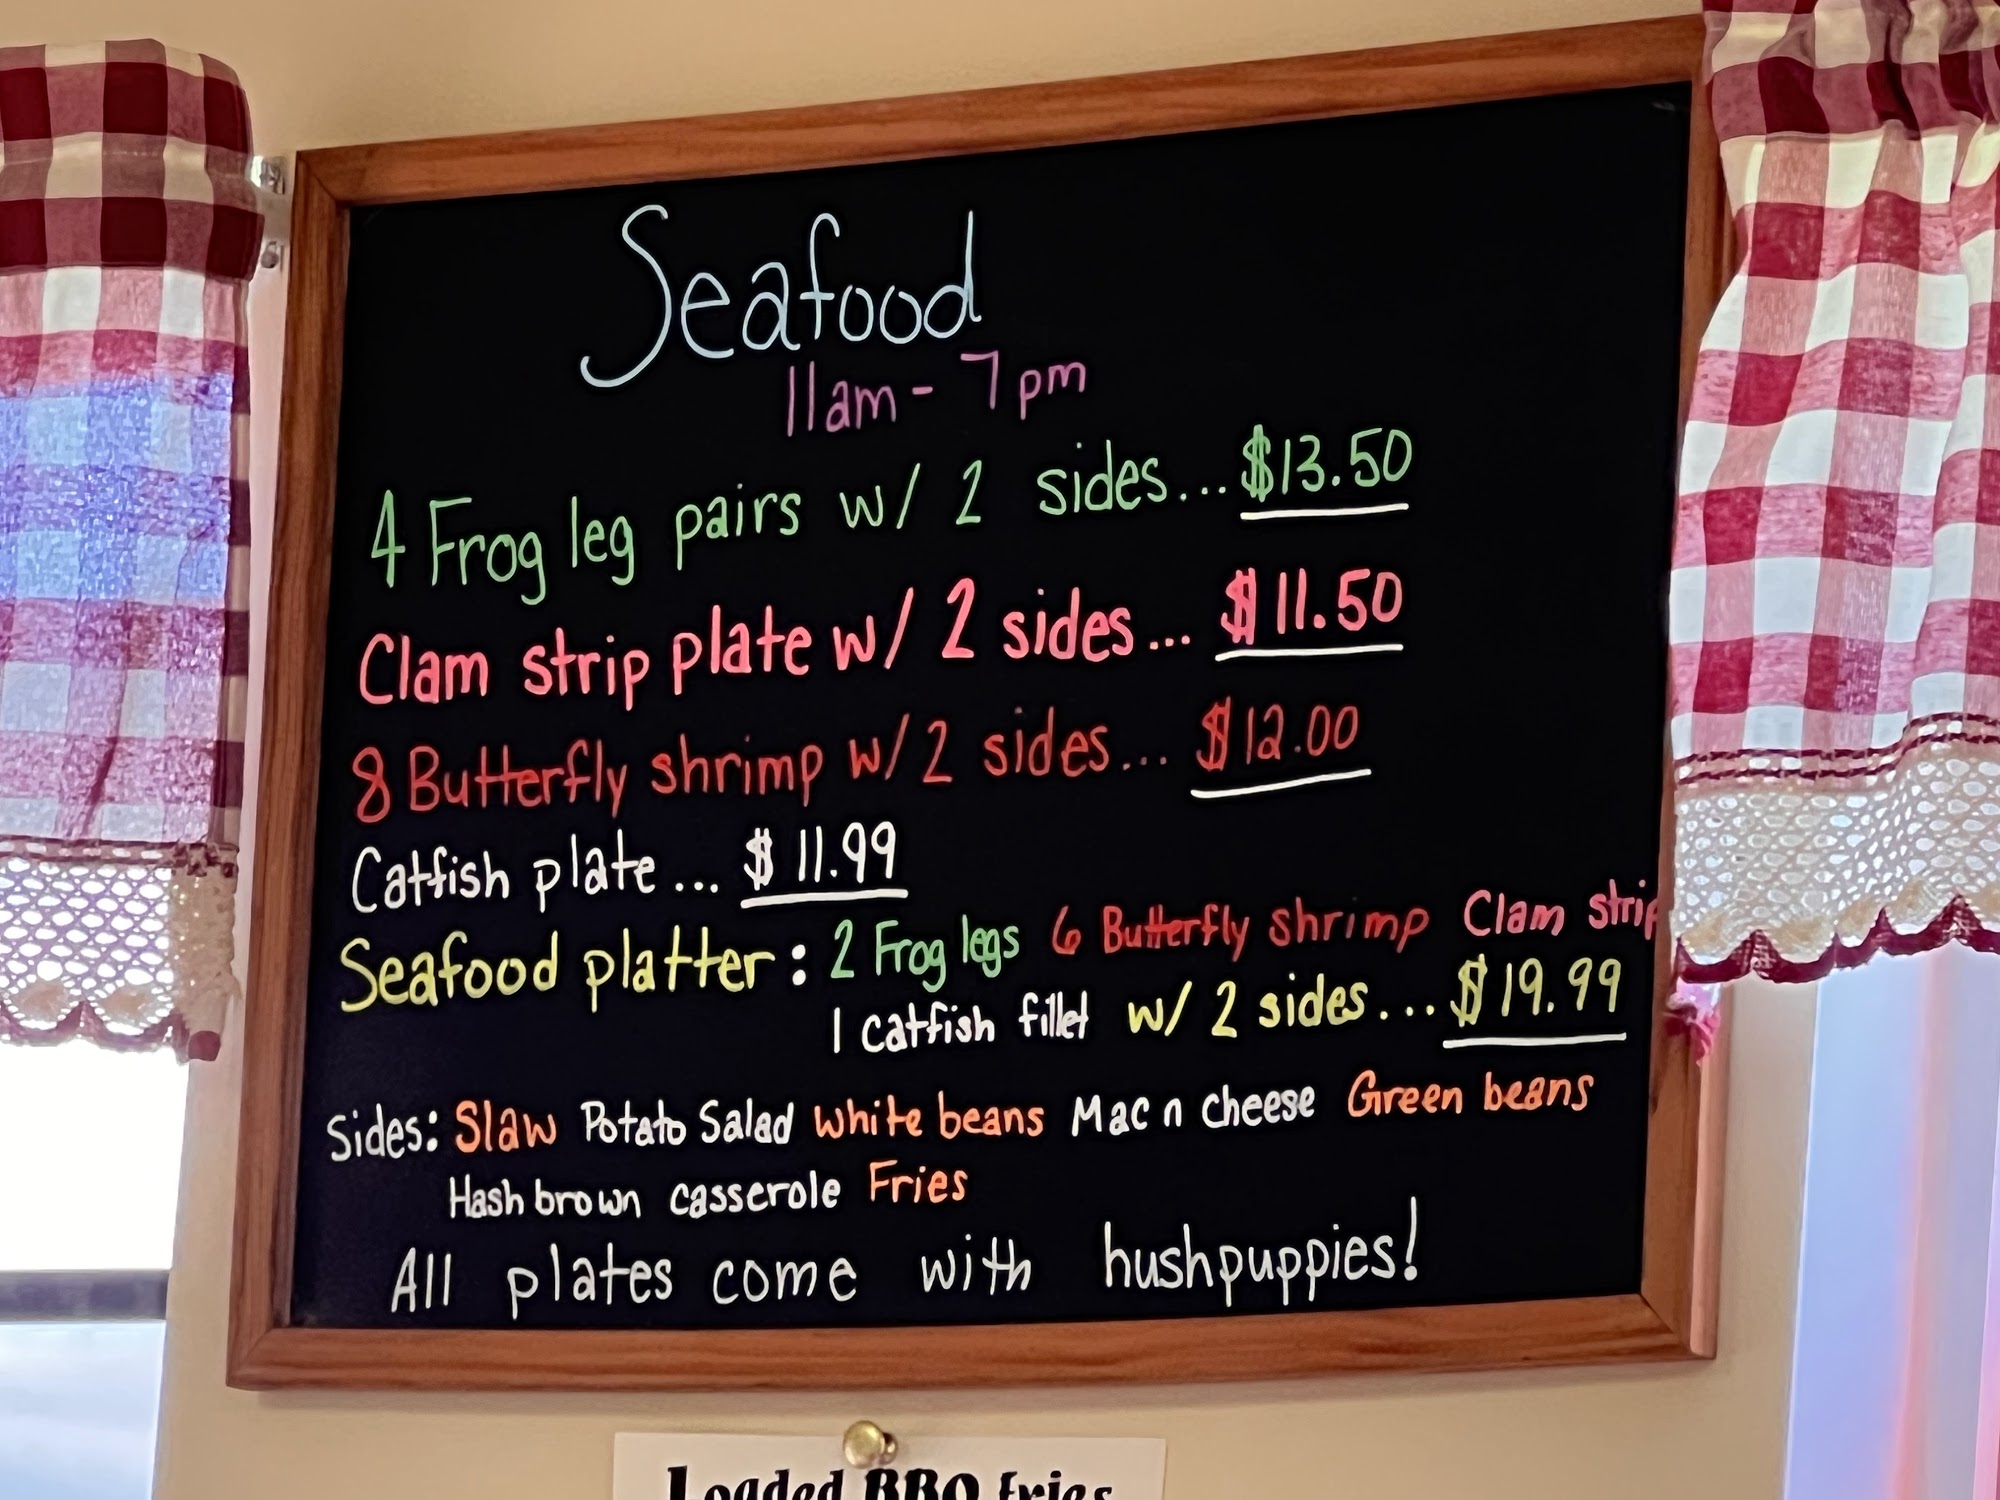 Seafood
11am - 7pm
4 Frog leg pairs w/ 2 sides... $13.50
Clam strip plate w/ 2 sides... $11.50
8 Butterfly shrimp w/ 2 sides... $12.00
Catfish plate... $11.99
Seafood platter: 2 Frog legs 6 Butterfly shrimp Clam strip
1 catfish fillet w/ 2 sides... $19.99
Sides: Slaw Potato Salad White beans Mac n cheese Green beans
Hashbrown casserole Fries
All plates come with hushpuppies!
Loaded BBQ fries